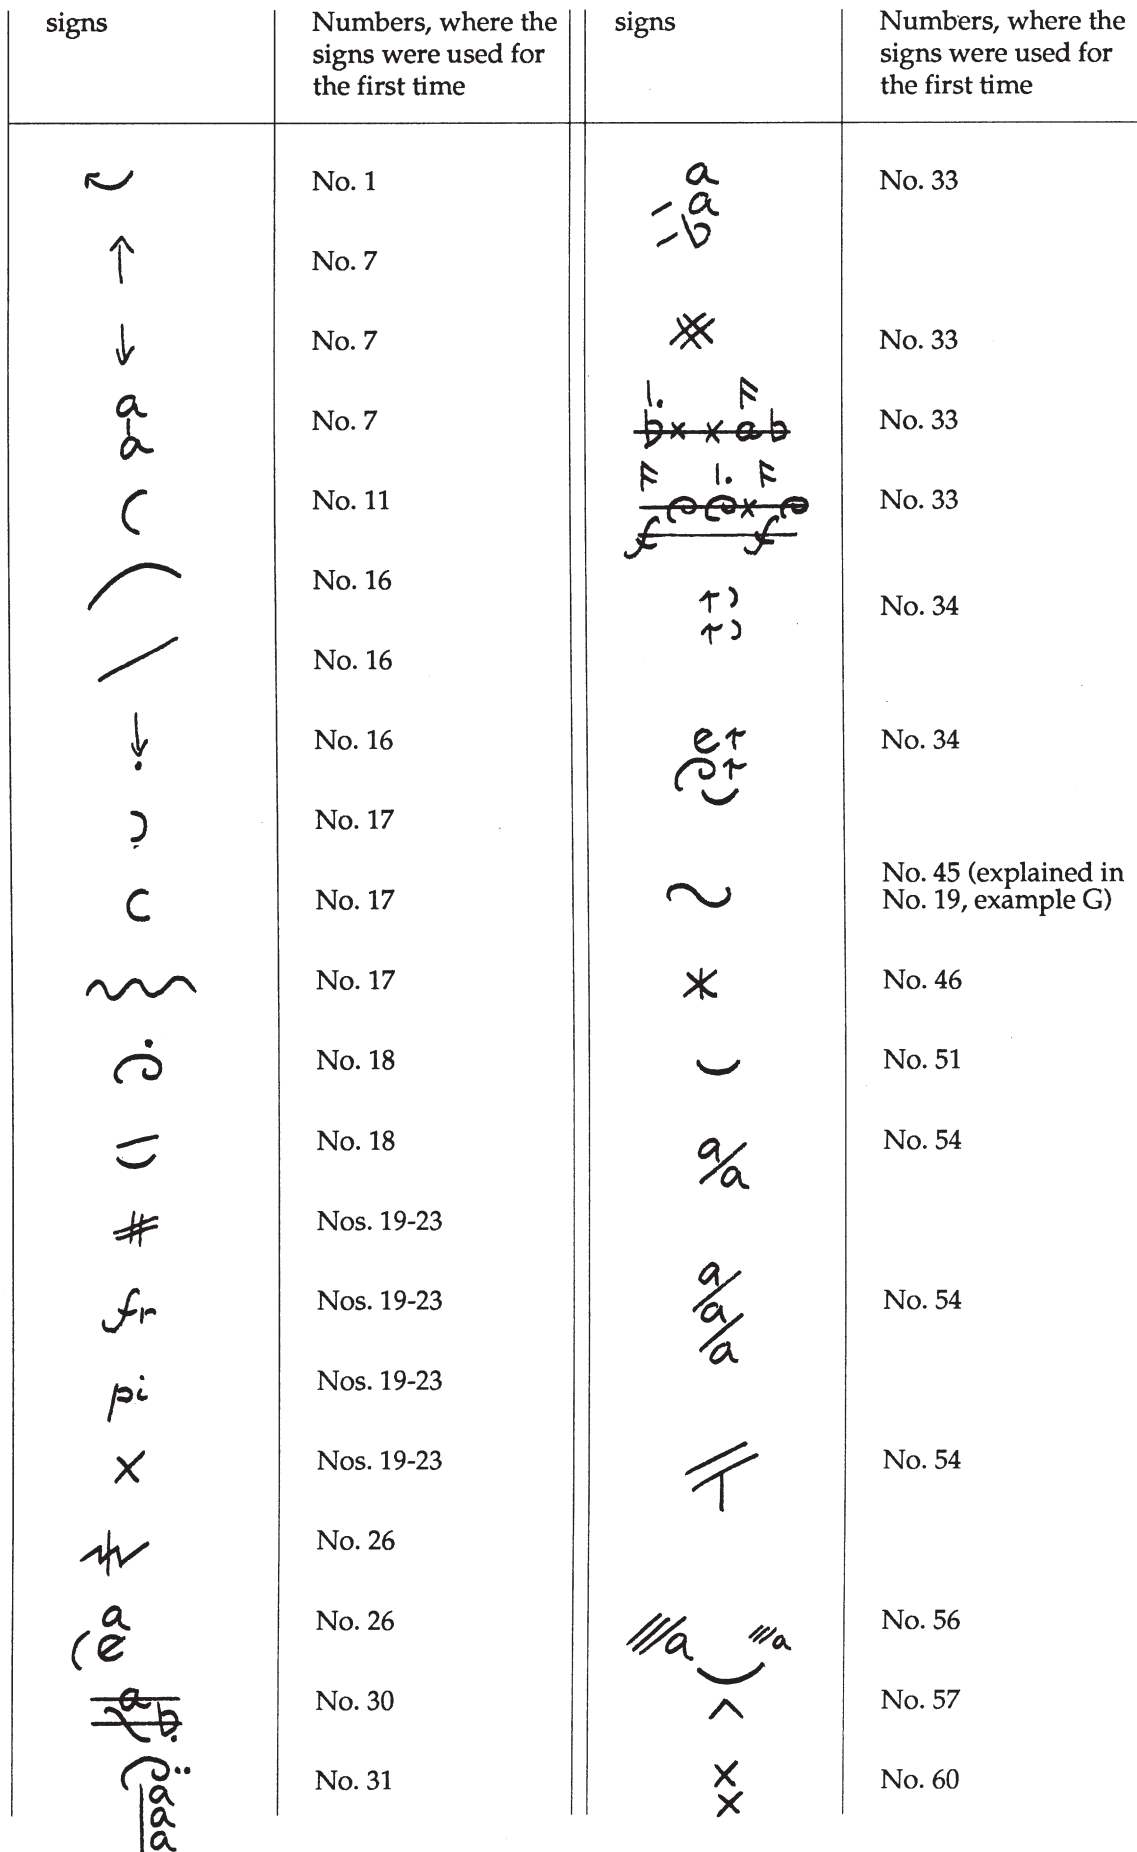 signs
Numbers, where the
signs were used for
the first time
No. 1
No. 7
No. 7
a
a
No. 7
No. 11
No. 16
No. 16
No. 16
No. 17
No. 17
No. 17
No. 18
No. 18
Nos. 19-23
fr
Nos. 19-23
pi
Nos. 19-23
x
Nos. 19-23
No. 26
a
e
No. 26
a
b.
No. 30
a
a
a
No. 31
signs
Numbers, where the
signs were used for
the first time
a
a
b
No. 33
No. 33
l.
b x x a b
No. 33
l.
x
f f
No. 33
No. 34
e
No. 34
No. 45 (explained in
No. 19, example G)
No. 46
No. 51
a/a
No. 54
a/
a/
a
No. 54
No. 54
///a ///a
No. 56
No. 57
x
x
No. 60